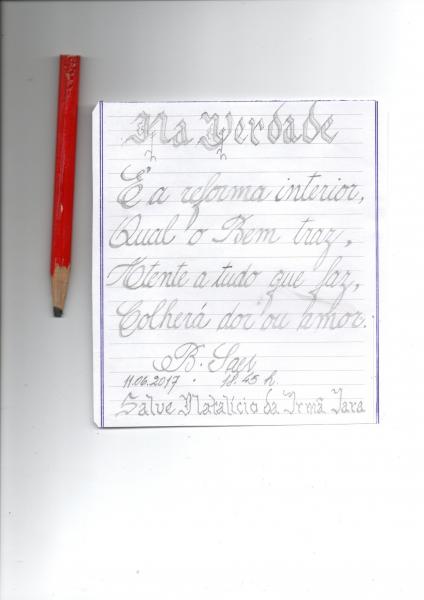 Na Verdade
É a reforma interior,
Qual o Bem traz,
Atente a tudo que faz,
Colherá dor ou amor.
B. Saes
11.06.2017 . 18.45 h.
Salve Natalício da Irmã Iara